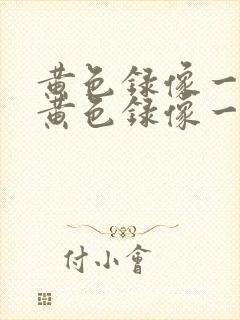 黄色录像一
黄色录像一
付小會